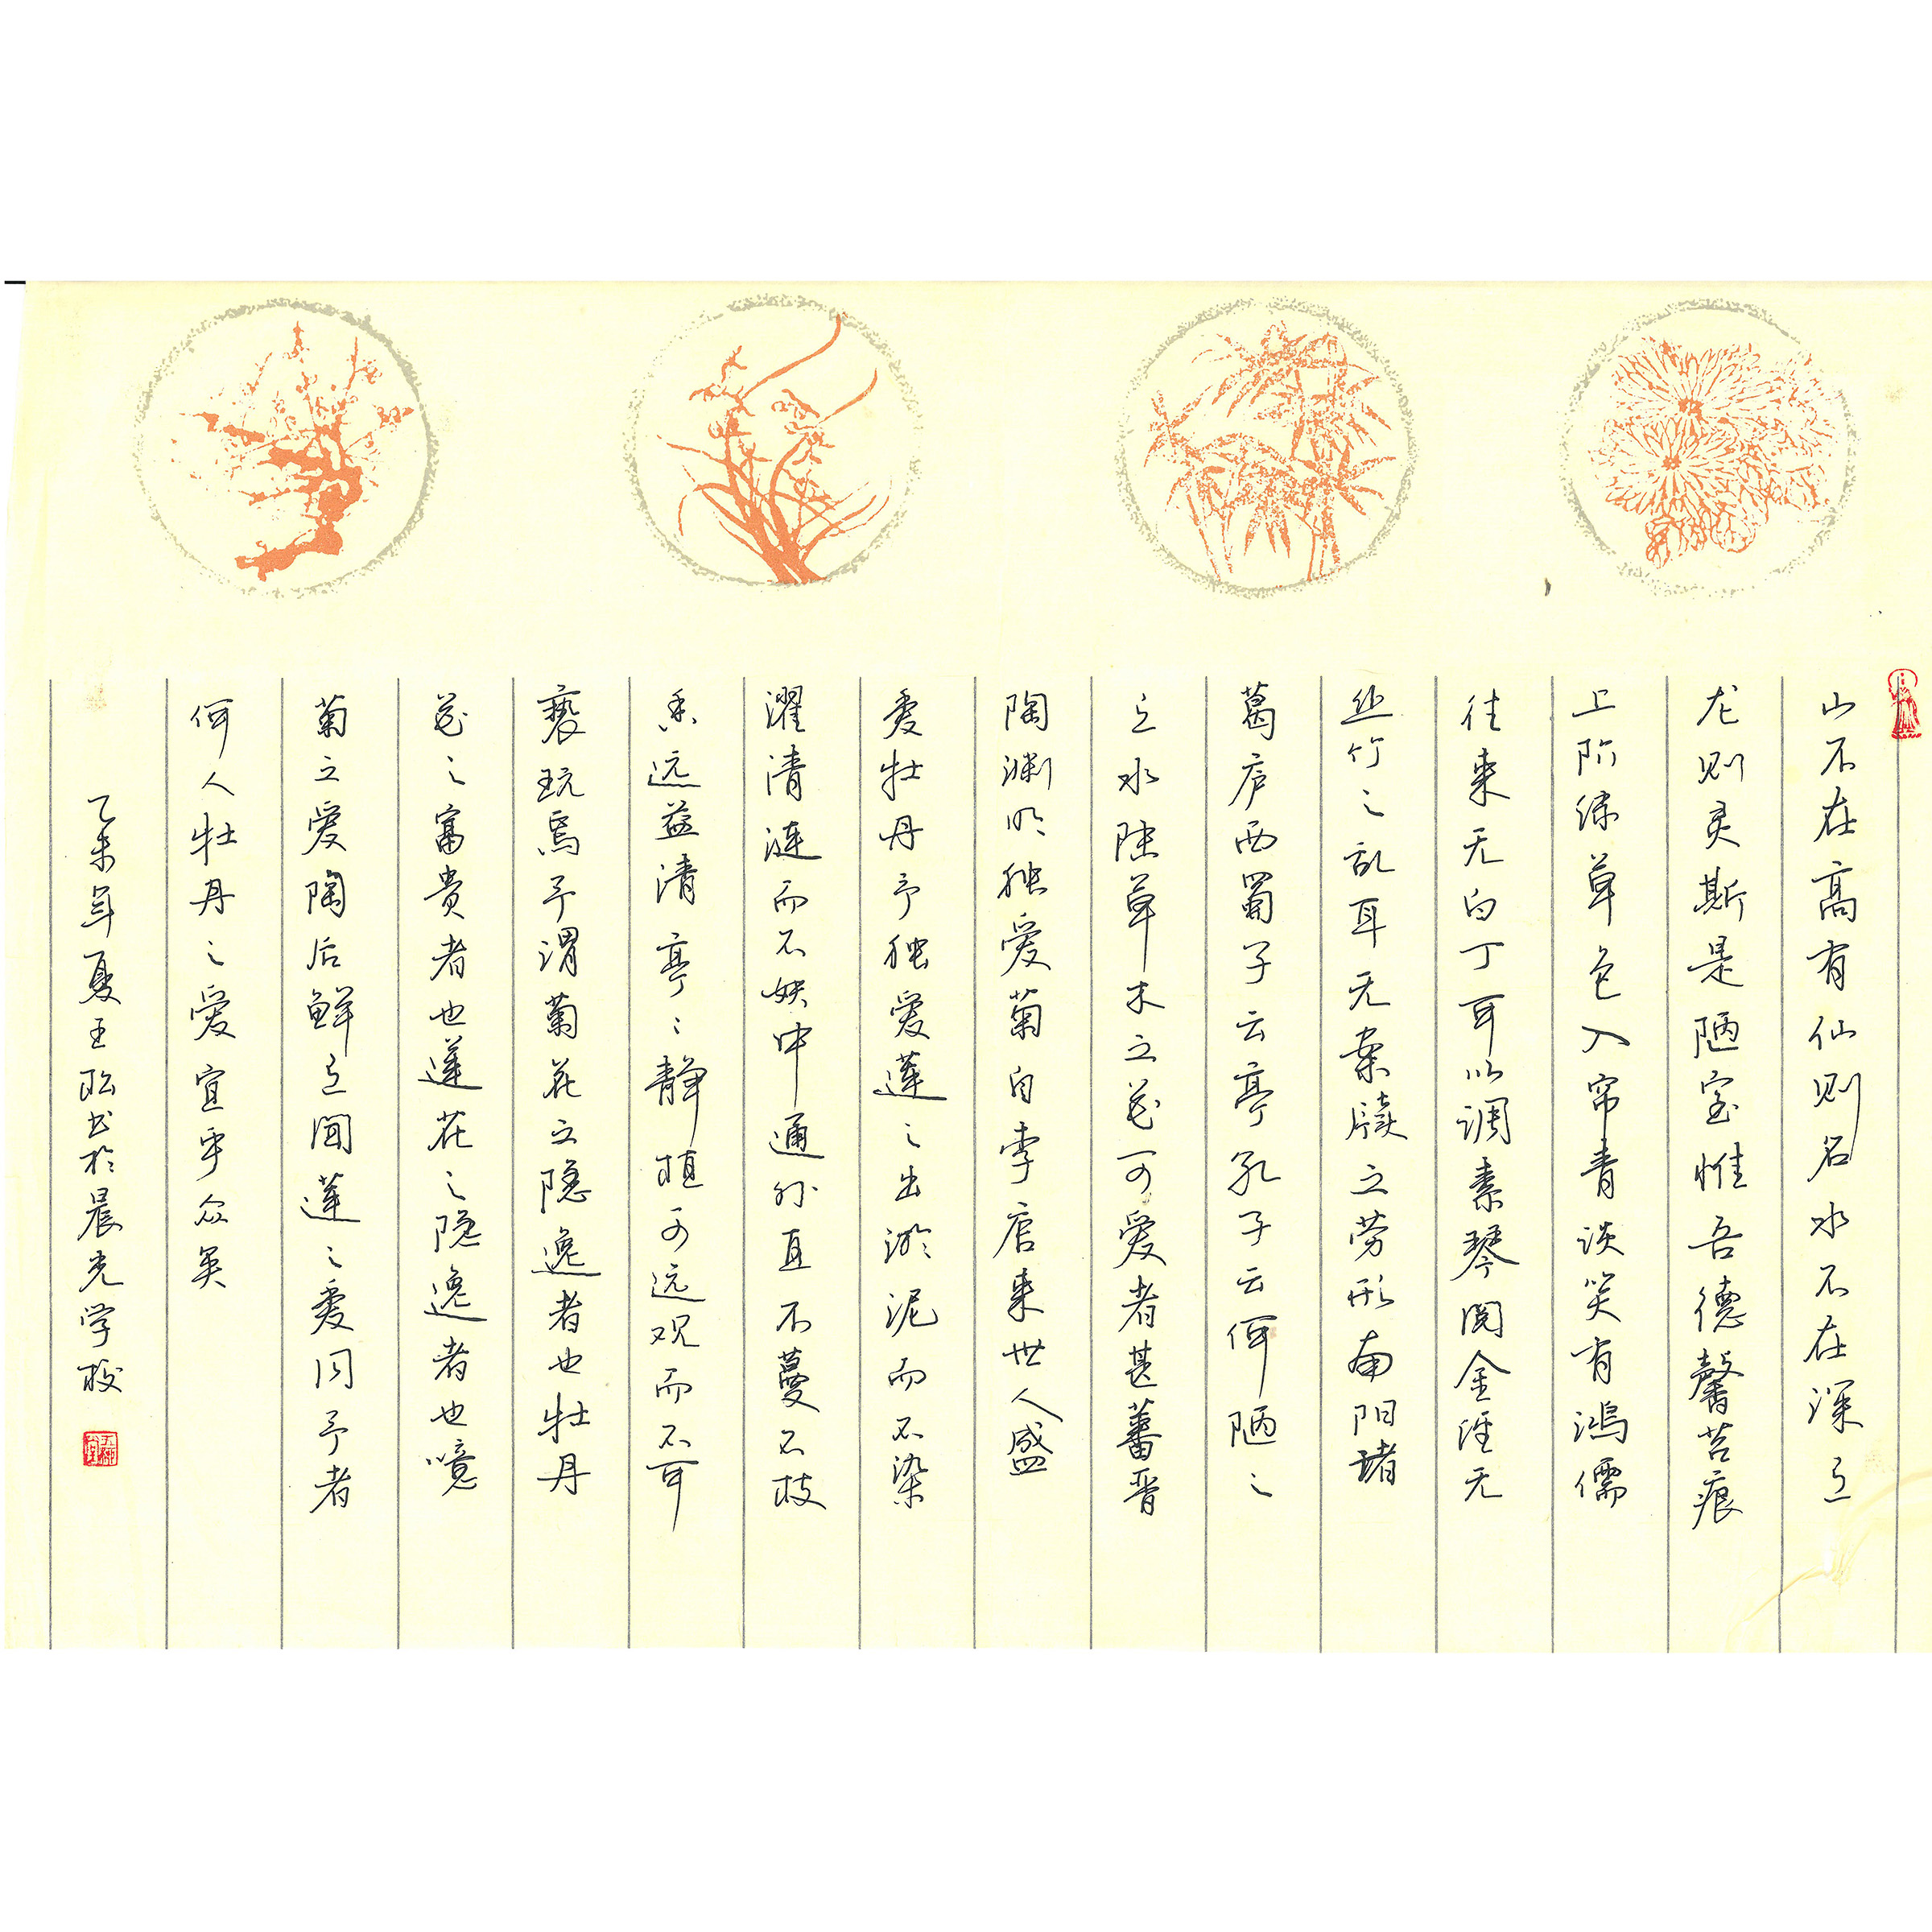 山不在高有仙则名水不在深有
龙则灵斯是陋室惟吾德馨苔痕
上阶绿草色入帘青谈笑有鸿儒
往来无白丁可以调素琴阅金经无
丝竹之乱耳无案牍之劳形南阳诸
葛庐西蜀子云亭孔子云何陋之
有水陆草木之花可爱者甚蕃晋
陶渊明独爱菊自李唐来世人盛
爱牡丹予独爱莲之出淤泥而不染
濯清涟而不妖中通外直不蔓不枝
香远益清亭亭静植可远观而不可
亵玩焉予谓菊花之隐逸者也牡丹
花之富贵者也莲花之隐逸者也噫
菊之爱陶后鲜有闻莲之爱同予者
何人牡丹之爱宜乎众矣
乙未年夏王书於晨光学校